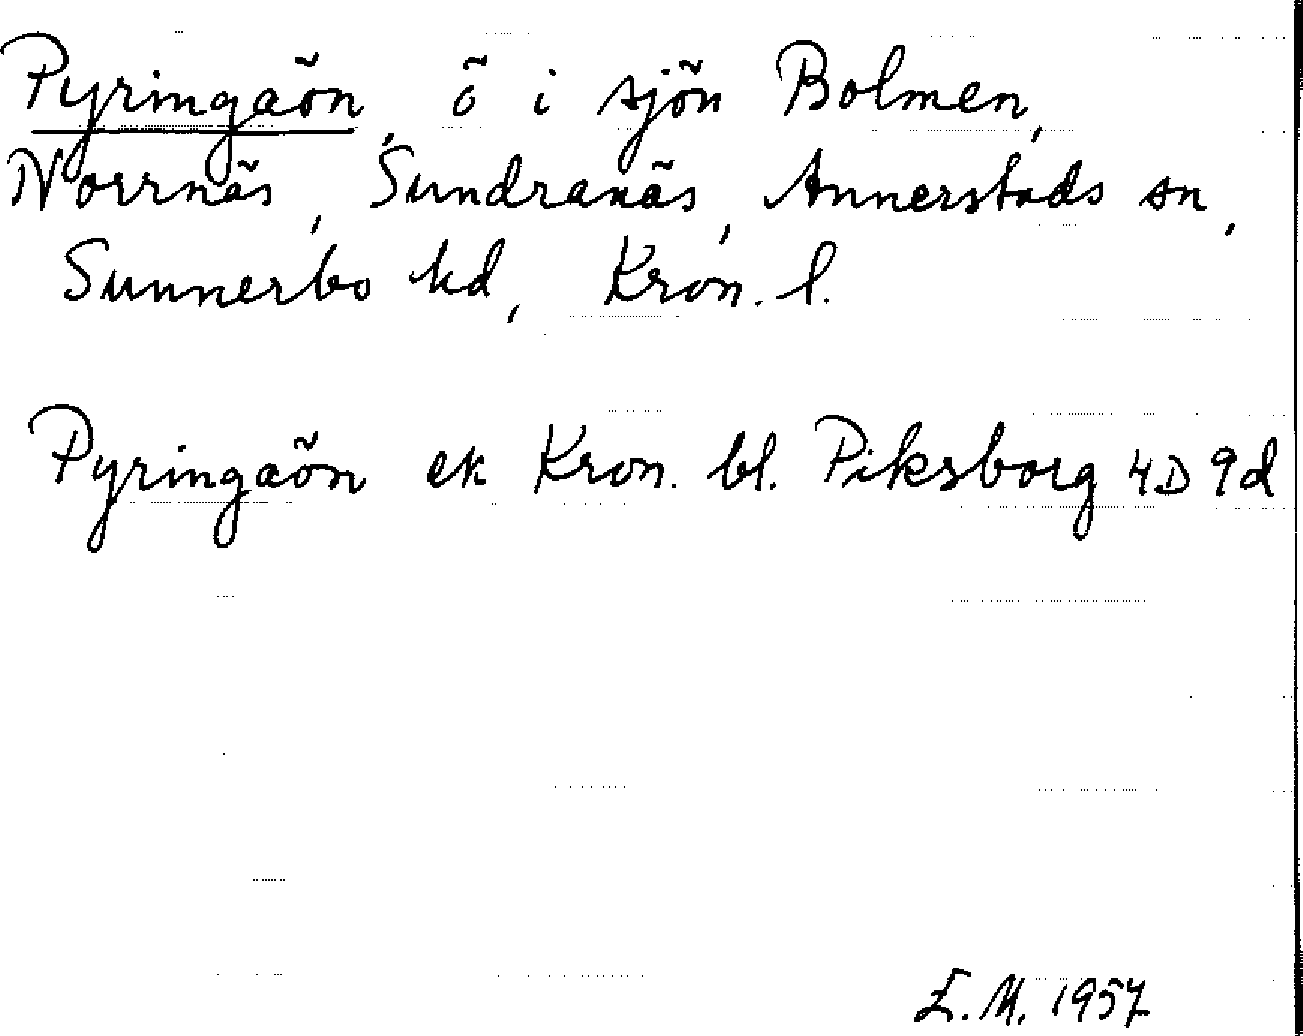 Pyringaön, ö i sjön Bolmen,
Norrnäs, Sundranäs, Annerstads sn,
Sunnerbo hd, Kron. l.
Pyringaön ek Kron. bl. Piksborg 4D 9d
E.M. 1957